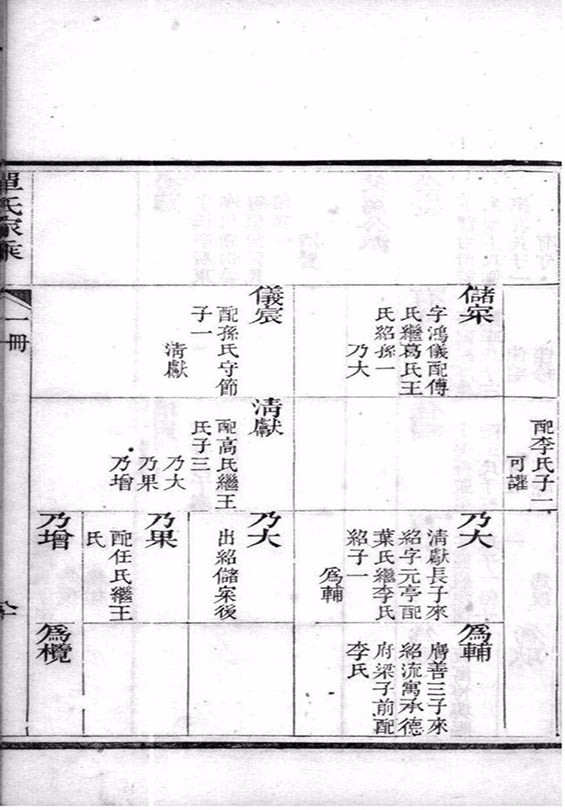 配李氏子二
可讙
儲寀
字鴻儀配傅
氏繼葛氏王
氏紹孫一
乃大
乃大
清獻長子來
紹字元亭配
葉氏繼李氏
紹子一
爲輔
爲輔
膺善三子來
紹流寓承德
府梁子前配
李氏
儀宸
配孫氏守節
子一
清獻
清獻
配高氏繼王
氏子三
乃大
乃果
乃增
乃大
出紹儲寀後
乃果
配任氏繼王
氏
乃增
爲欖
單氏家乘
一冊